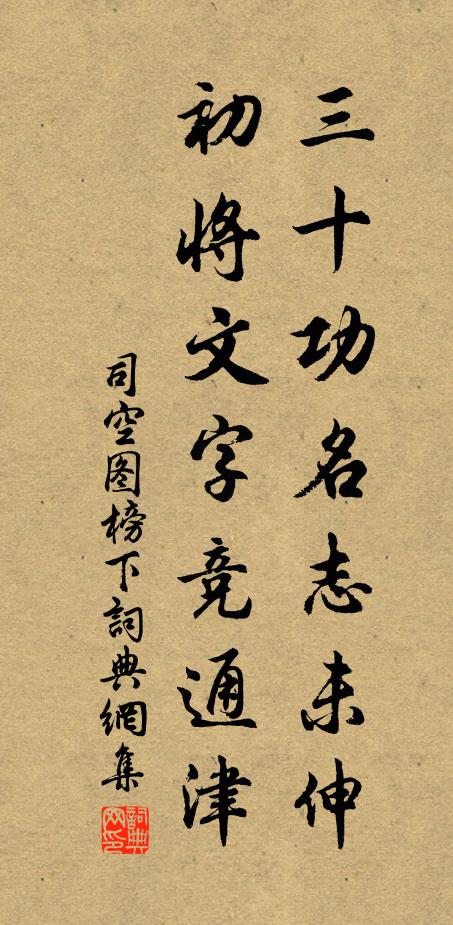 三十功名志未伸
初將文字竞通津
司空图榜下詞典網集
詞典網印